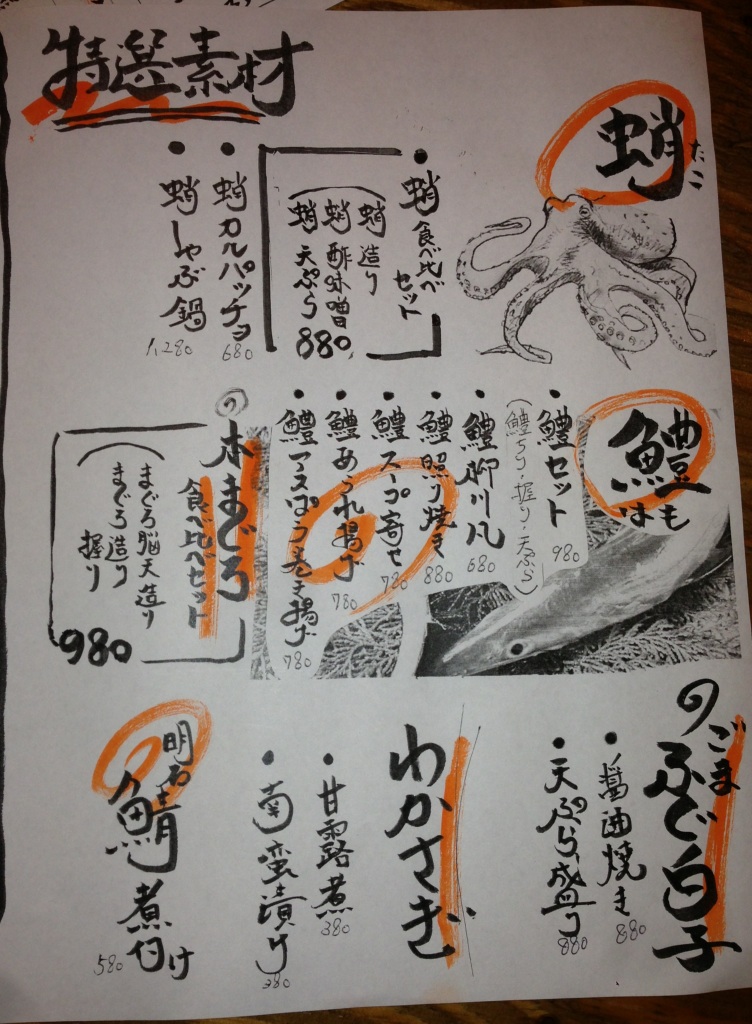 特選素材
蛸
たこ
・蛸食べ比べ
セット
(蛸造り
蛸酢味噌
蛸天ぷら
880
・蛸カルパッチョ
680
・蛸しゃぶ鍋
1,280
鱧
はも
・鱧セット
980
(鱧ちり・握り・天ぷら)
・鱧柳川風
680
・鱧照り焼き
880
・鱧スープ寄せ
780
・鱧あられ揚げ
780
・鱧アスパラ巻き揚げ
780
本まぐろ
食べ比べセット
(まぐろ脳天造り
まぐろ造り
握り
980
ごまふぐ白子
・醤油焼き
880
・天ぷら盛り
880
わかさぎ
・甘露煮
380
・南蛮漬け
380
明石
鯖煮付け
580